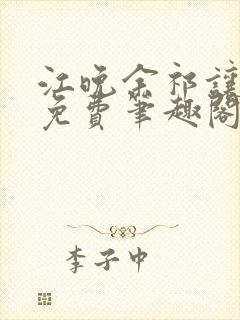 江晚余祁让
免费笔趣阁
李子中